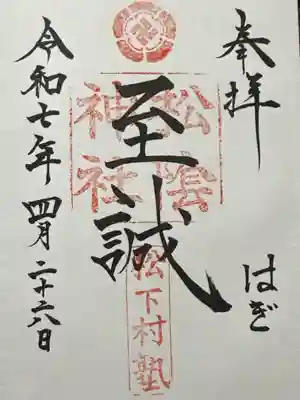 奉拝
はぎ
松陰
神社
至誠
松下村塾
令和七年 四月二十六日